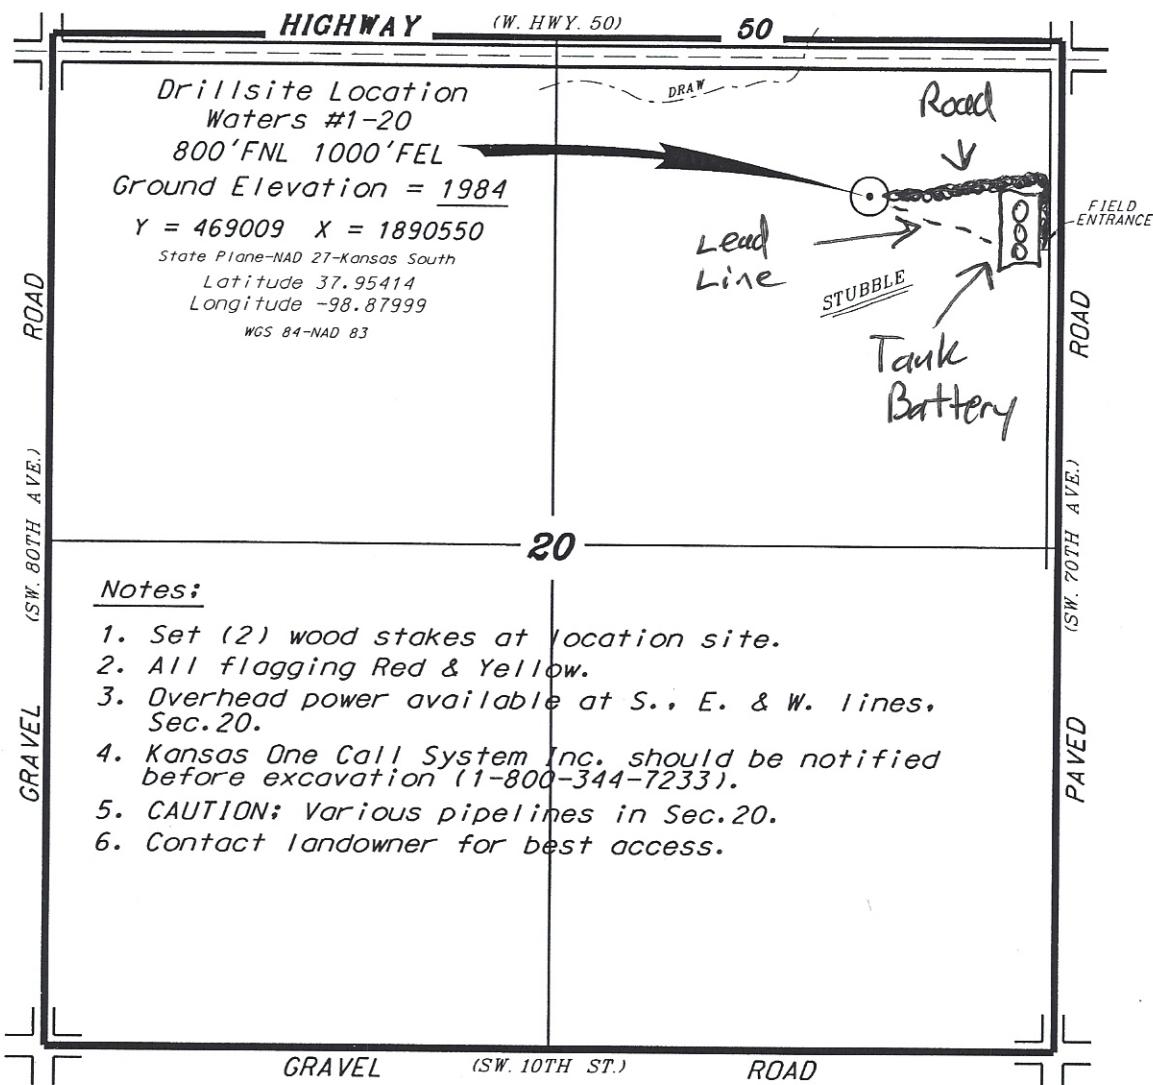 HIGHWAY (W. HWY. 50) 50
DRAW
Drillsite Location
Waters #1-20
800'FNL 1000'FEL
Ground Elevation = 1984
Y = 469009 X = 1890550
State Plane-NAD 27-Kansas South
Latitude 37.95414
Longitude -98.87999
WGS 84-NAD 83
Road
FIELD
ENTRANCE
Lead
Line
STUBBLE
Tank
Battery
ROAD
(SW. 80TH AVE.)
GRAVEL
ROAD
(SW. 70TH AVE.)
PAVED
20
Notes:
1. Set (2) wood stakes at location site.
2. All flagging Red & Yellow.
3. Overhead power available at S., E. & W. lines,
Sec.20.
4. Kansas One Call System Inc. should be notified
before excavation (1-800-344-7233).
5. CAUTION: Various pipelines in Sec.20.
6. Contact landowner for best access.
GRAVEL (SW. 10TH ST.) ROAD